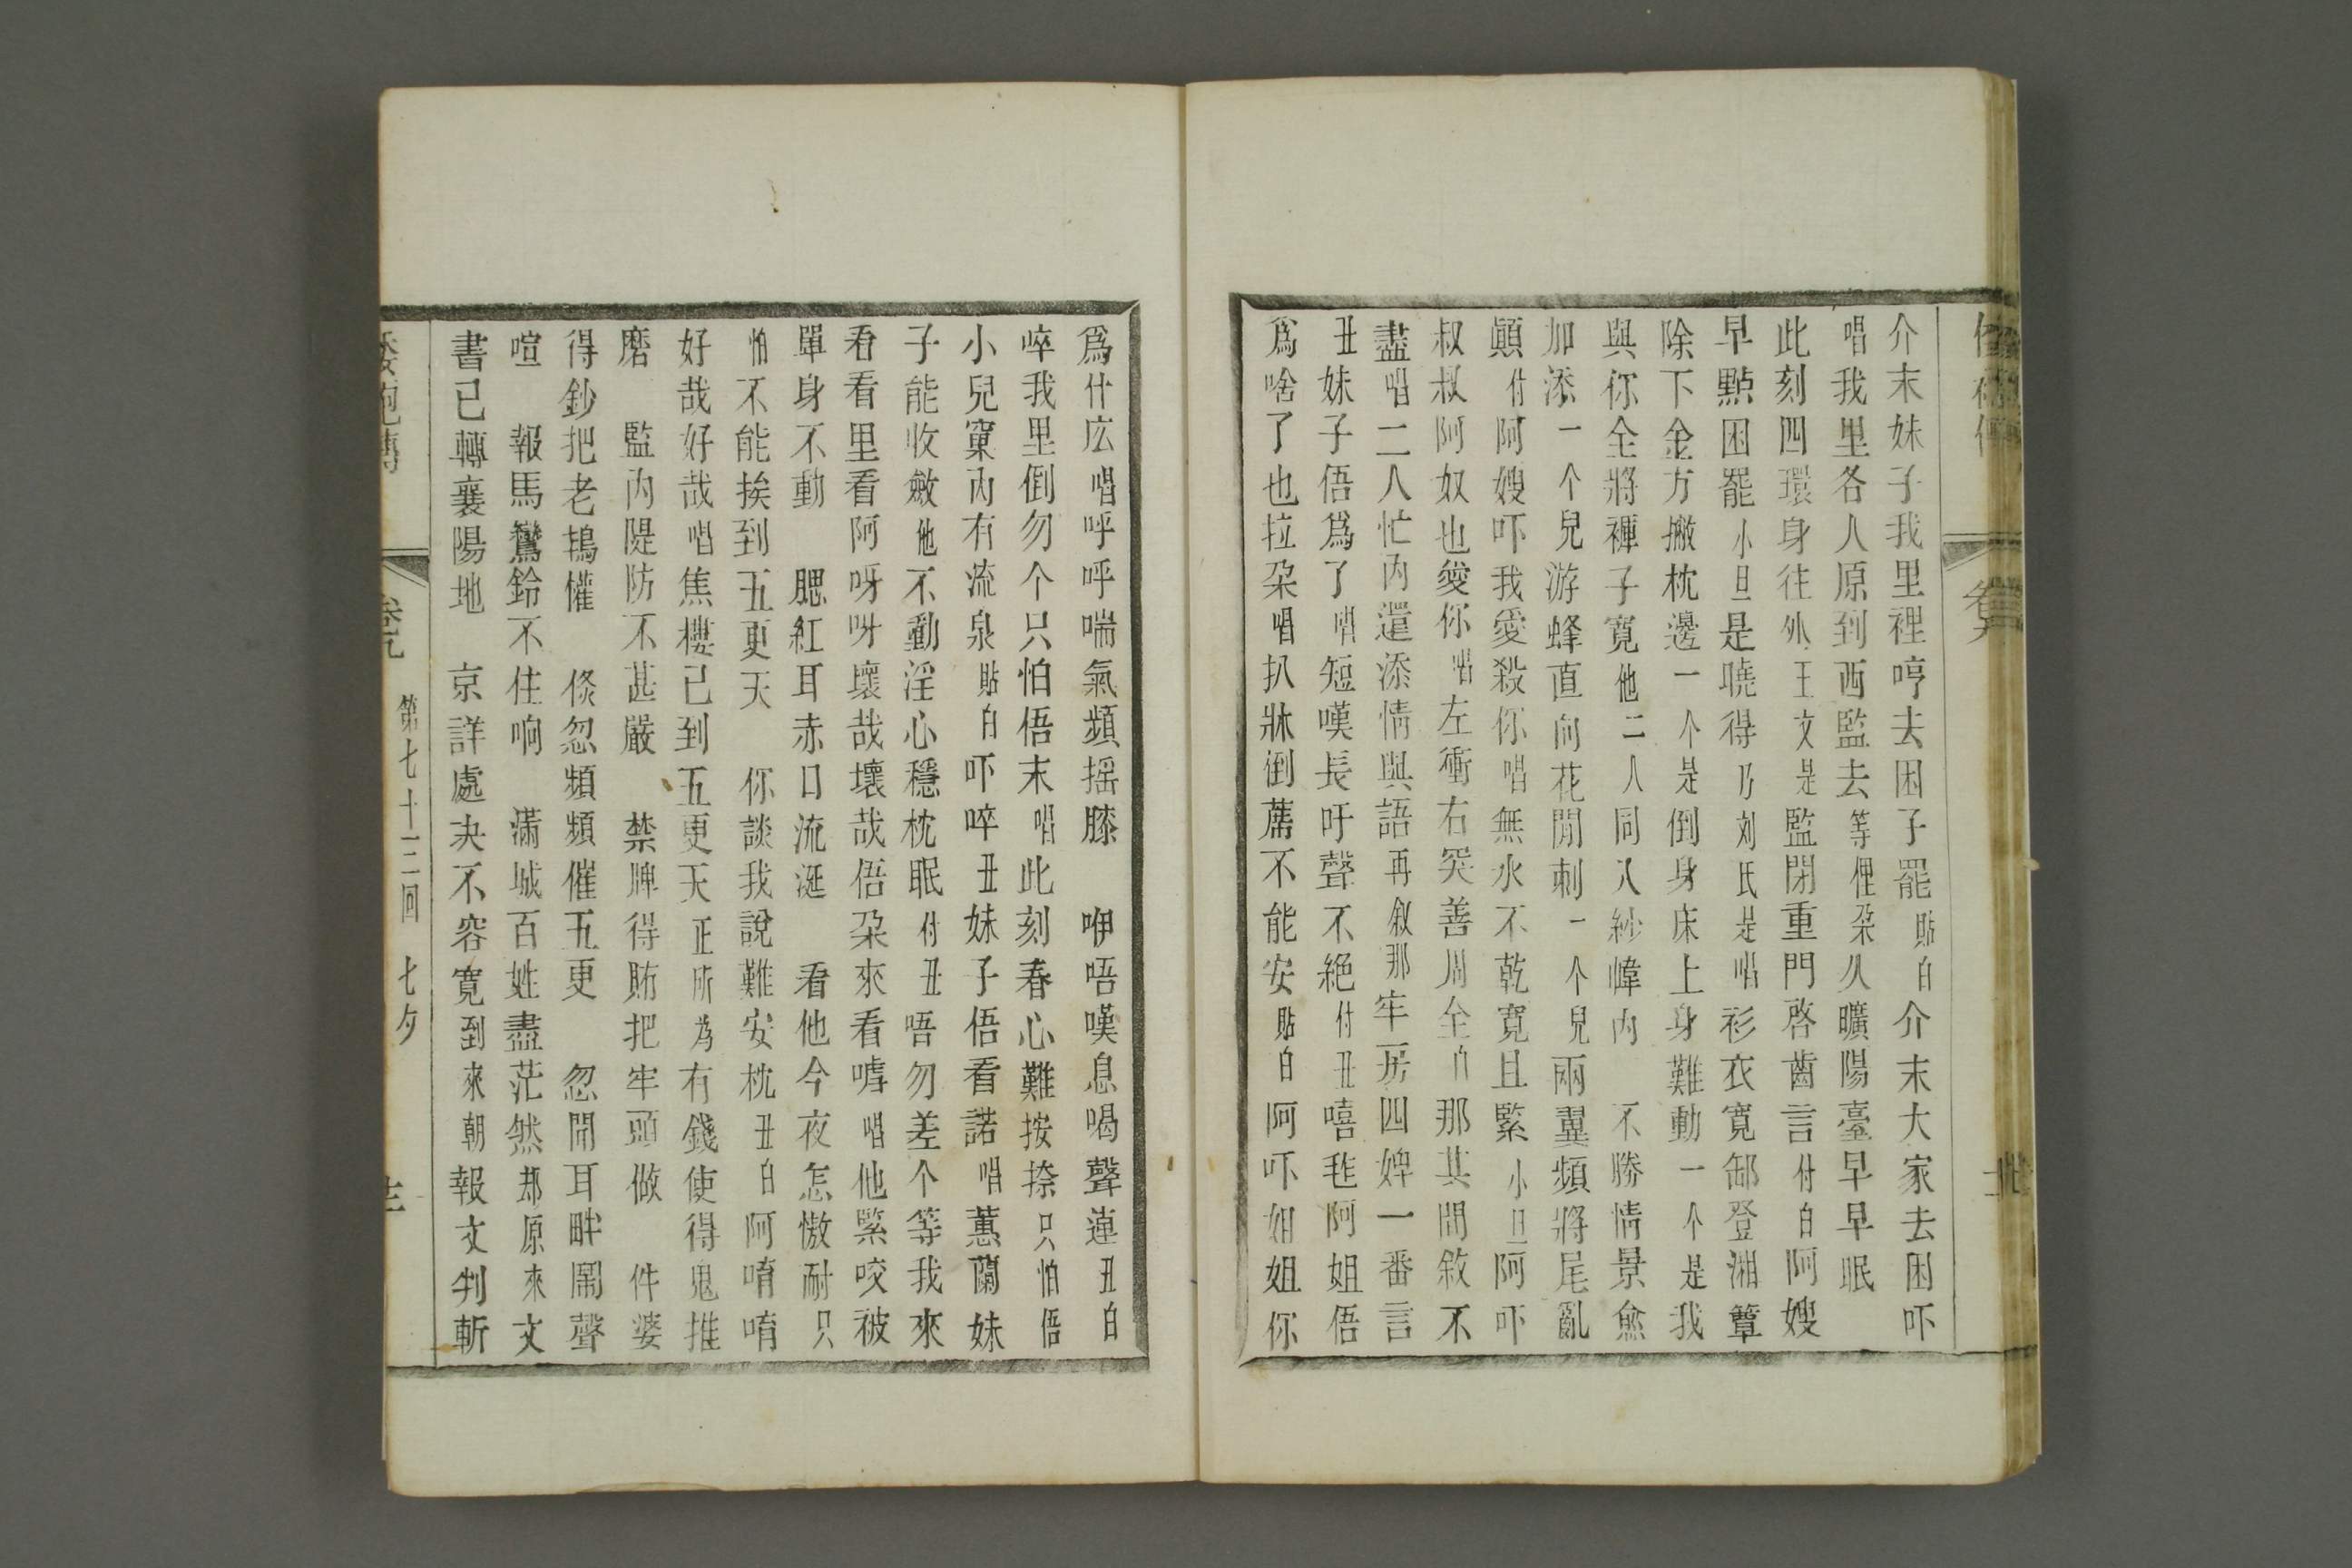 介末妹子我里裡哼去困子罷貼白介末大家去困吓
唱我里各人原到西監去等俚朶久曠陽臺早早眠
此刻四環身往外王文是監閉重門啓齒言付白阿嫂
早點困罷小旦是曉得乃刘氏是唱衫衣寬卸登湘簟
除下金方撇枕邊一个是倒身床上身難動一个是我
與你全將褲子寬他二人同入紗幃內 不勝情景愈
加添一个兒游蜂直向花間刺一个兒兩翼頻將尾亂
顛付阿嫂吓我愛殺你唱無水不乾寬且緊小旦阿吓
叔叔阿奴也愛你唱左衝右突善周全白那其間敘不
盡唱二人忙內還添情與語再叙那牢房四婢一番言
丑妹子俉爲了唱短嘆長吁聲不絕付丑嘻𣬠阿姐俉
爲啥了也拉朶唱扒牀倒蓆不能安貼白阿吓姐姐你
爲什庅唱呼呼喘氣頻摇膝 咿唔嘆息喝聲連丑白
啐我里倒勿个只怕俉末唱此刻春心難按捺只怕俉
小兒窠內有流泉貼白吓啐丑妹子俉看諾唱蕙蘭妹
子能收斂他不動淫心穩枕眠付丑唔勿差个等我來
看看里看阿呀呀壞哉壞哉俉朶來看嘑唱他緊咬被
單身不動 腮紅耳赤口流涎 看他今夜怎憿耐只
怕不能挨到五更天 你談我說難安枕丑白阿唷唷
好哉好哉唱焦樓已到五更天正所為有錢使得鬼推
磨 監內隄防不甚嚴 禁牌得賄把牢頭做 伴婆
得鈔把老鴇催 倐忽頻頻催五更 忽聞耳畔鬧聲
喧 報馬鸞鈴不住响 滿城百姓盡茫然那原來文
書已轉襄陽地 京詳處决不容寬到來朝報文判斬
第七十二回 七夕